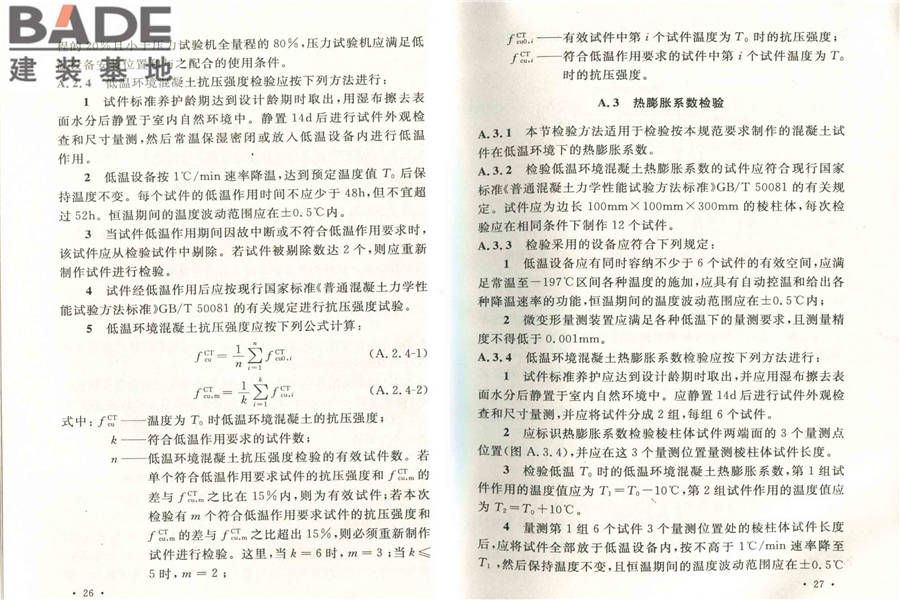 BADE
建装基地
程的20%且小于压力试验机全量程的80%,压力试验机应满足低
之配合的使用条件。
A.2.4 低温环境混凝土抗压强度检验应按下列方法进行:
1 试件标准养护龄期达到设计龄期时取出,用湿布擦去表
面水分后静置于室内自然环境中。静置14d后进行试件外观检
查和尺寸量测,然后常温保湿密闭或放入低温设备内进行低温
作用。
2 低温设备按1℃/min速率降温,达到预定温度值T₀后保
持温度不变。每个试件的低温作用时间不应少于48h,但不宜超
过52h。恒温期间的温度波动范围应在±0.5℃内。
3 当试件低温作用期间因故中断或不符合低温作用要求时,
该试件应从检验试件中剔除。若试件被剔除数达2个,则应重新
制作试件进行检验。
4 试件经低温作用后应按现行国家标准《普通混凝土力学性
能试验方法标准》GB/T 50081的有关规定进行抗压强度试验。
5 低温环境混凝土抗压强度应按下列公式计算:
f_{cu}^{CT} = \frac{1}{n}\sum_{i=1}^{n} f_{cu0,i}^{CT} (A.2.4-1)
f_{cu,m}^{CT} = \frac{1}{k}\sum_{i=1}^{k} f_{cu,i}^{CT} (A.2.4-2)
式中:f_{cu}^{CT}——温度为T₀时低温环境混凝土的抗压强度;
k——符合低温作用要求的试件数;
n——低温环境混凝土抗压强度检验的有效试件数。若
单个符合低温作用要求试件的抗压强度和f_{cu,m}^{CT}的
差与f_{cu,m}^{CT}之比在15%内,则为有效试件;若本次
检验有m个符合低温作用要求试件的抗压强度和
f_{cu,m}^{CT}的差与f_{cu,m}^{CT}之比超出15%,则必须重新制作
试件进行检验。这里,当k=6时,m=3;当k≤
5时,m=2;
· 26 ·
f_{cu0,i}^{CT}——有效试件中第i个试件温度为T₀时的抗压强度;
f_{cu,i}^{CT}——符合低温作用要求的试件中第i个试件温度为T₀
时的抗压强度。
A.3 热膨胀系数检验
A.3.1 本节检验方法适用于检验按本规范要求制作的混凝土试
件在低温环境下的热膨胀系数。
A.3.2 检验低温环境混凝土热膨胀系数的试件应符合现行国家
标准《普通混凝土力学性能试验方法标准》GB/T 50081的有关规
定。试件应为边长100mm×100mm×300mm的棱柱体,每次检
验应在相同条件下制作12个试件。
A.3.3 检验采用的设备应符合下列规定:
1 低温设备应有同时容纳不少于6个试件的有效空间,应满
足常温至−197℃区间各种温度的施加,应具有自动控温和给出各
种降温速率的功能,恒温期间的温度波动范围应在±0.5℃内;
2 微变形量测装置应满足各种低温下的量测要求,且测量精
度不得低于0.001mm。
A.3.4 低温环境混凝土热膨胀系数检验应按下列方法进行:
1 试件标准养护应达到设计龄期时取出,并应用湿布擦去表
面水分后静置于室内自然环境中。应静置14d后进行试件外观检
查和尺寸量测,并应将试件分成2组,每组6个试件。
2 应标识热膨胀系数检验棱柱体试件两端面的3个量测点
位置(图A.3.4),并应在这3个量测位置量测棱柱体试件长度。
3 检验低温T₀时的低温环境混凝土热膨胀系数,第1组试
件作用的温度值应为T₁=T₀−10℃,第2组试件作用的温度值应
为T₂=T₀+10℃。
4 量测第1组6个试件3个量测位置处的棱柱体试件长度
后,应将试件全部放于低温设备内,按不高于1℃/min速率降至
T₁,然后保持温度不变,且恒温期间的温度波动范围应在±0.5℃
· 27 ·